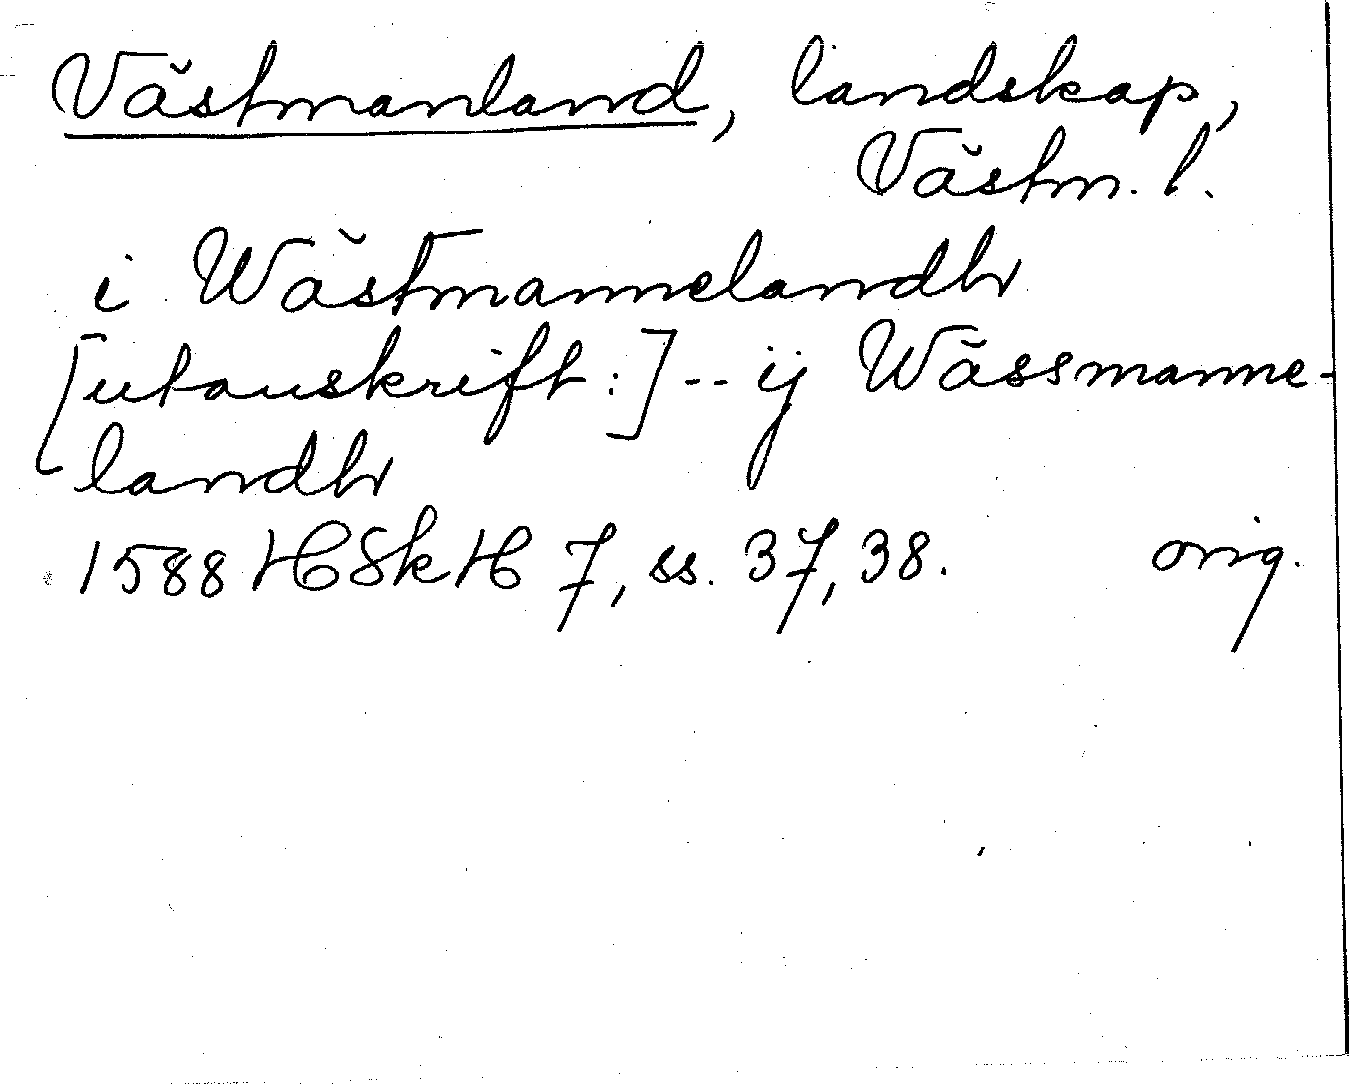 Västmanland, landskap,
Västm. l.
i Wästmannelandh
[utanskrift:] -- ij Wässmanne-
landh
1588 HSkH 7, ss. 37, 38. orig.